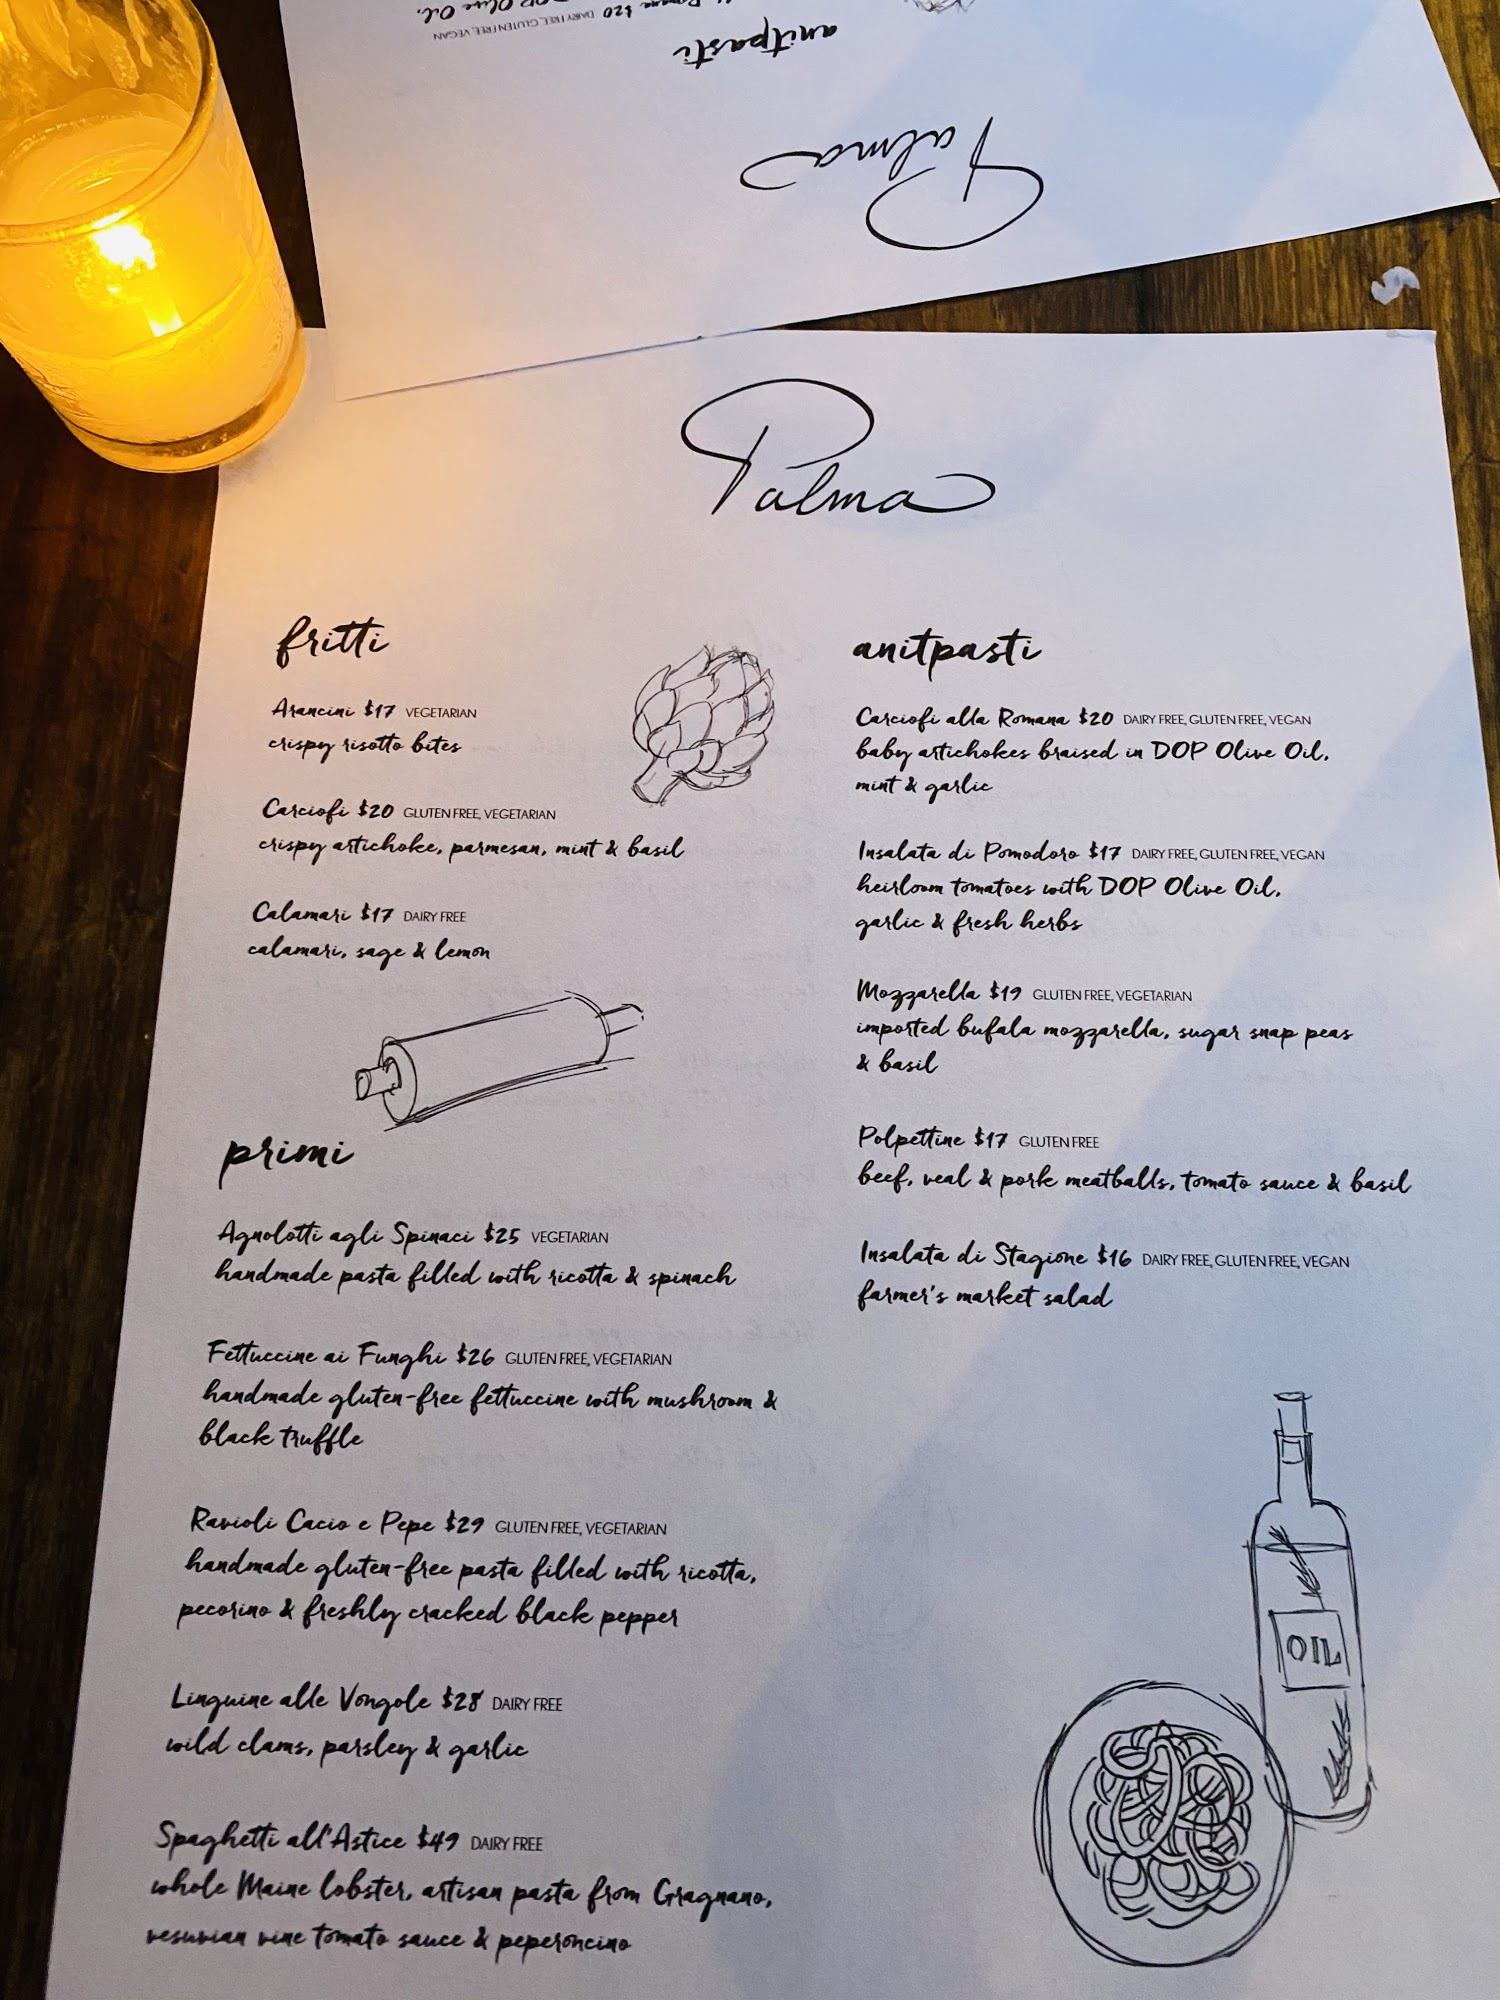 anitpasti
Palma
DAIRY FREE, GLUTEN FREE, VEGAN
$20
Olive Oil,
Palma
fritti
Arancini $17 VEGETARIAN
crispy risotto bites
Carciofi $20 GLUTEN FREE, VEGETARIAN
crispy artichoke, parmesan, mint & basil
Calamari $17 DAIRY FREE
calamari, sage & lemon
primi
Agnolotti agli Spinaci $25 VEGETARIAN
handmade pasta filled with ricotta & spinach
Fettuccine ai Funghi $26 GLUTEN FREE, VEGETARIAN
handmade gluten-free fettuccine with mushroom &
black truffle
Ravioli Cacio e Pepe $29 GLUTEN FREE, VEGETARIAN
handmade gluten-free pasta filled with ricotta,
pecorino & freshly cracked black pepper
Linguine alle Vongole $28 DAIRY FREE
wild clams, parsley & garlic
Spaghetti all'Astice $49 DAIRY FREE
whole Maine lobster, artisan pasta from Gragnano,
vesuvian vine tomato sauce & peperoncino
anitpasti
Carciofi alla Romana $20 DAIRY FREE, GLUTEN FREE, VEGAN
baby artichokes braised in DOP Olive Oil,
mint & garlic
Insalata di Pomodoro $17 DAIRY FREE, GLUTEN FREE, VEGAN
heirloom tomatoes with DOP Olive Oil,
garlic & fresh herbs
Mozzarella $19 GLUTEN FREE, VEGETARIAN
imported bufala mozzarella, sugar snap peas
& basil
Polpettine $17 GLUTEN FREE
beef, veal & pork meatballs, tomato sauce & basil
Insalata di Stagione $16 DAIRY FREE, GLUTEN FREE, VEGAN
farmer's market salad
OIL